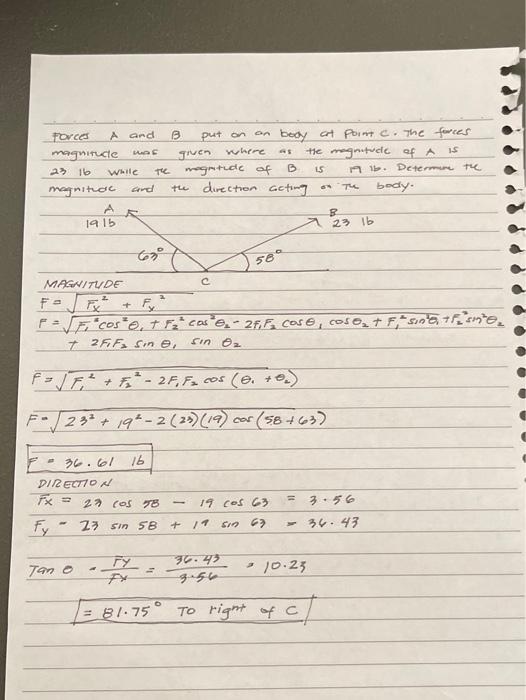 Forces A and B put on an body at Point C. The forces
magnitude was given where as the magnitude of A is
23 lb while the magnitude of B is 19 lb. Determine the
magnitude and the direction acting on the body.
A B
19 lb 23 lb
63° 58°
C
MAGNITUDE
F = √Fx² + Fy²
F = √F₁²cos²θ, + F₂² cos²θ₂ - 2F₁F₂ cosθ, cosθ₂ + F₁² sin²θ, + F₂² sin²θ₂
+ 2F₁F₂ sin θ, sin θ₂
F = √F₁² + F₂² - 2F₁F₂ cos (θ₁ + θ₂)
F = √23² + 19² - 2(23)(19) cos (58 + 63)
F = 36.61 lb
DIRECTION
Fx = 23 cos 58 - 19 cos 63 = 3.56
Fy = 23 sin 58 + 19 sin 63 = 36.43
Tan θ = Fy/Fx = 36.43/3.56 = 10.23
= 81.75° To right of C